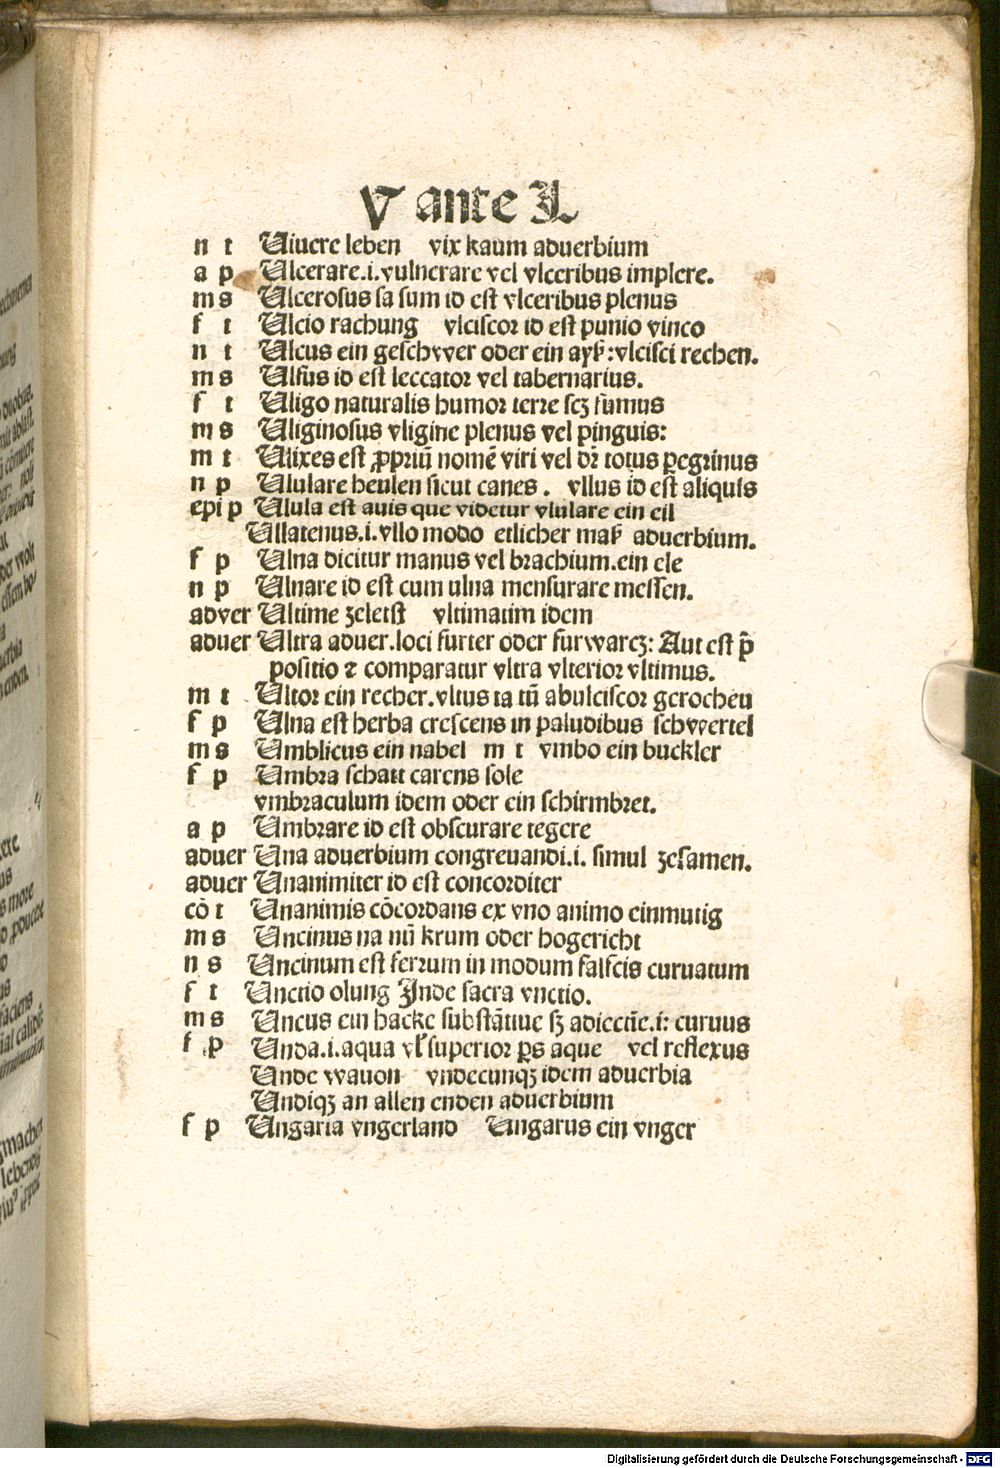 V ante L
n t Uiuere leben vix kaum aduerbium
a p Ulcerare.i.vulnerare vel vlceribus implere.
m s Ulcerosus sa sum id est vlceribus plenus
f t Ulcio rachung vlciscor id est punio vinco
n t Ulcus ein geschvver oder ein ayß:vlcisci rechen.
m s Ulsus id est leccator vel tabernarius.
f t Uligo naturalis humor terre scꝫ fumus
m s Uliginosus vligine plenus vel pinguis:
m t Ulixes est ꝓpriū nomē viri vel dr̄ totus ꝑegrinus
n p Ululare heulen sicut canes. vllus id est aliquis
epi p Ulula est auis que videtur vlulare ein eil
Ullatenus.i.vllo modo etlicher maß aduerbium.
f p Ulna dicitur manus vel brachium.ein ele
n p Ulnare id est cum ulna mensurare messen.
adver Ultime ꝫeletst vltimatim idem
aduer Ultra aduer.loci furter oder furwarcꝫ: Aut est p̄
positio ⁊ comparatur vltra vlterior vltimus.
m t Ultor ein recher.vltus ta tū abulciscor gerochen
f p Ulna est herba crescens in paludibus schvvertel
m s Umblicus ein nabel m t vmbo ein buckler
f p Umbra schatt carens sole
vmbraculum idem oder ein schirmbret.
a p Umbrare id est obscurare tegere
aduer Una aduerbium congreuandi.i. simul ꝫesamen.
aduer Unanimiter id est concorditer
cō t Unanimis cōcordans ex vno animo einmutig
m s Uncinus na nū krum oder hogericht
n s Uncinum est ferrum in modum falscis curuatum
f t Unctio olung Inde sacra vnctio.
m s Uncus ein hacke substātiue sꝫ adiectīe.i: curuus
f p Unda.i.aqua vl̓ superior ꝑs aque vel reflexus
Unde wauon vndecunqꝫ idem aduerbia
Undiqꝫ an allen enden aduerbium
f p Ungaria vngerland Ungarus ein vnger
Digitalisierung gefördert durch die Deutsche Forschungsgemeinschaft - DFG